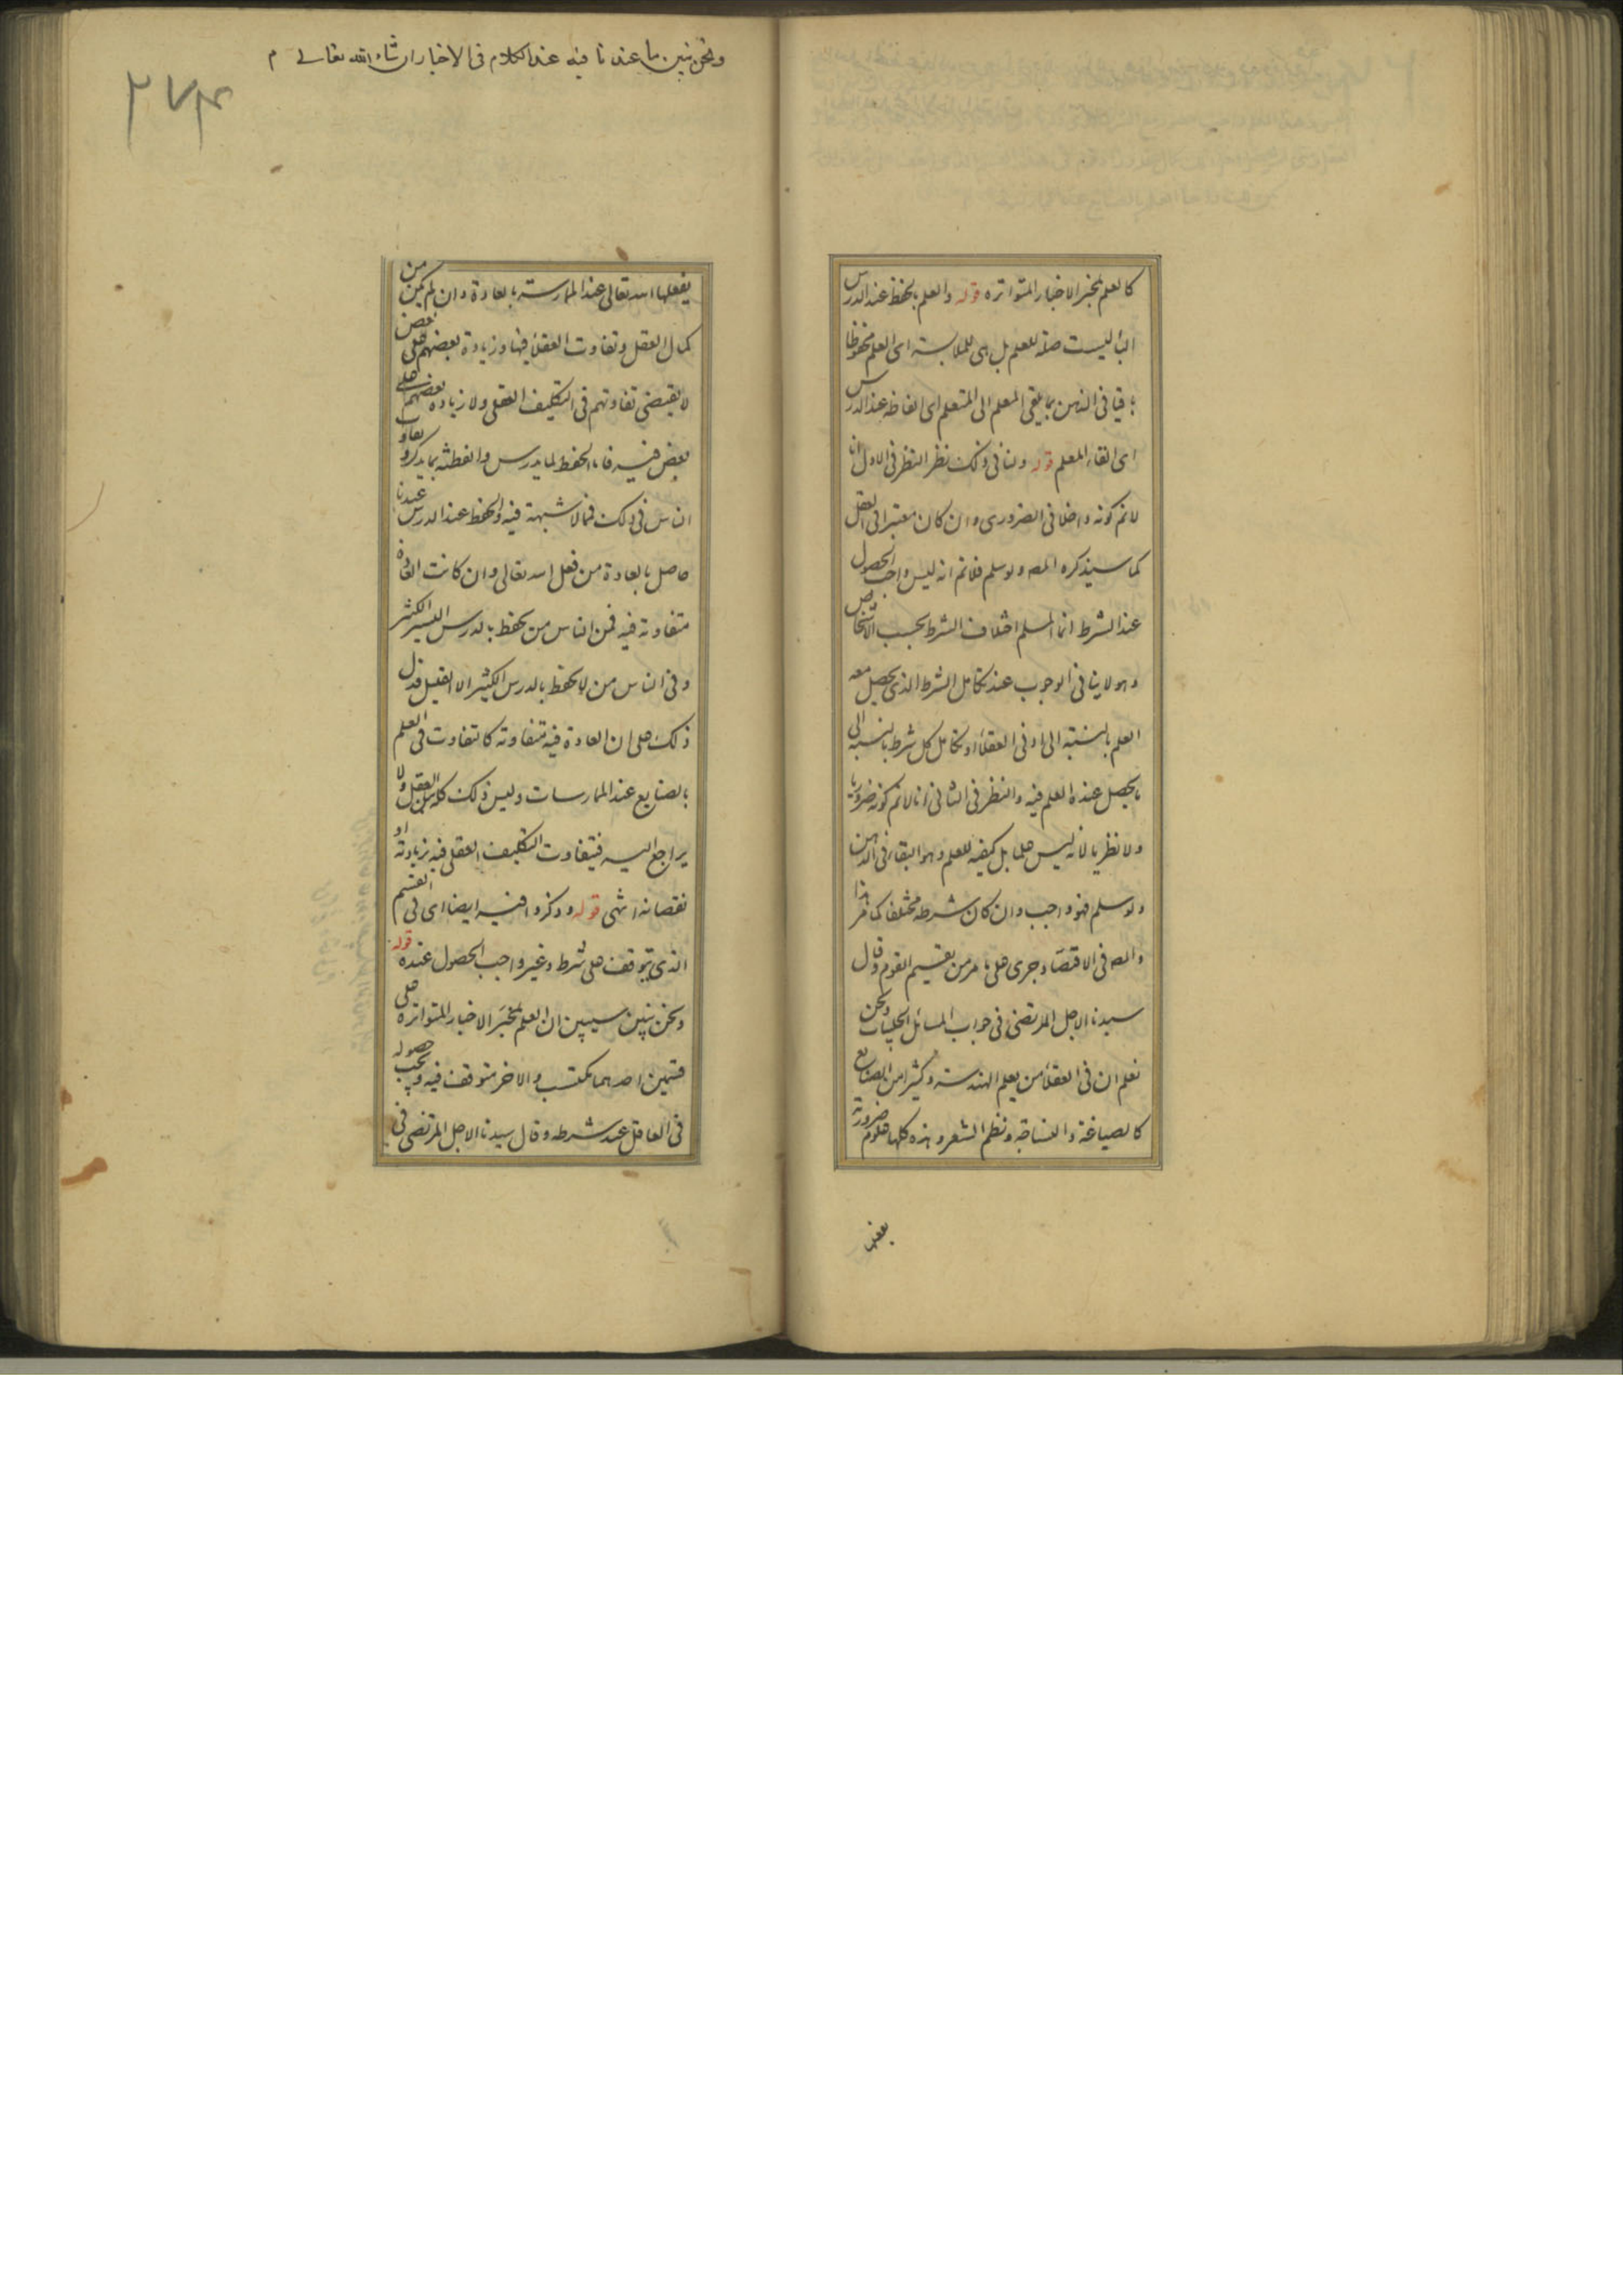 كالعلم بمخبر الاخبار المتواتره قوله والعلم بالحفظ عند الدرس
الباء ليست صلة للعلم بل هى للملابسة اى العلم محفوظا
باقيا فى الذهن بما يلقى المعلم الى المتعلم اى الفاظه عند الدرس
اى القاء المعلم قوله ولنا فى ذلك نظر النظر فى الاول انا
لانم كونه داخلا فى الضرورى وان كان معتبرا فى العقل
كما سيذكره المصه ولو سلم فلانم انه ليس واجب الحصول
عند الشرط انما المسلم اختلاف الشرط بحسب الاشخاص
وهو لا ينافى الوجوب عند تكامل الشرط الذى يحصل معه
العلم بالنسبته الى ادنى العقلاء او تكامل كل شرط بالنسبه الى
ما يحصل عنده العلم فيه والنظر فى الثانى انا لانم كونه ضروريا
ولا نظريا لانه ليس علما بل كيفيه للعلم وهو البقاء فى الذهن
ولو سلم فهو واجب وان كان شرطه مختلفا كما مر هذا
والمصه فى الاقتصاد جرى على ما مر من تقسيم القوم وقال
سيدنا الاجل المرتضى فى جواب المسائل الحلبيات ونحن
نعلم ان فى العقلاء من يعلم الهندسته وكثيرا من الصنايع
كالصياغة والنساجة ونظم الشعر وهذه كلها علوم ضرورية
يفعلها
ونحن نبين ما عندنا فيه عند الكلام فى الاخبار ان شاء الله تعالى م
٢٧٤
يفعلها الله تعالى عند الممارسته بالعادة وان لم يكن من
كمال العقل وتفاوت العقلاء فيها وزيادة بعضهم على بعض
لا يقتضى تفاوتهم فى التكليف العقلى ولا زيادة بعضهم على
بعض فيه فاما الحفظ لما يدرس والفطنة بما يذكر وتفاوت
الناس فى ذلك فما لا شبهة فيه والحفظ عند الدرس عندنا
حاصل بالعادة من فعل الله تعالى وان كانت العادة
متفاوته فيه فمن الناس من يحفظ بالدرس اليسير الكثير
وفى الناس من لا يحفظ بالدرس الكثير الا القليل فدل
ذلك على ان العادة فيه متفاوته كما تتفاوت فى العلم
بالصنايع عند الممارسات وليس ذلك كله من العقل ولا
يراجع اليه فيتفاوت التكليف العقلى فيه بزيادته او
نقصانه انتهى قوله وذكروا فيه ايضا اى فى القسم
الذى يتوقف على شرط وغير واجب الحصول عنده قوله
ونحن نبين سيبين ان العلم بمخبر الاخبار المتواتره على
قسمين احدهما مكتسب والاخر متوقف فيه ويجب حصوله
فى العاقل عند شرطه وقال سيدنا الاجل المرتضى فى